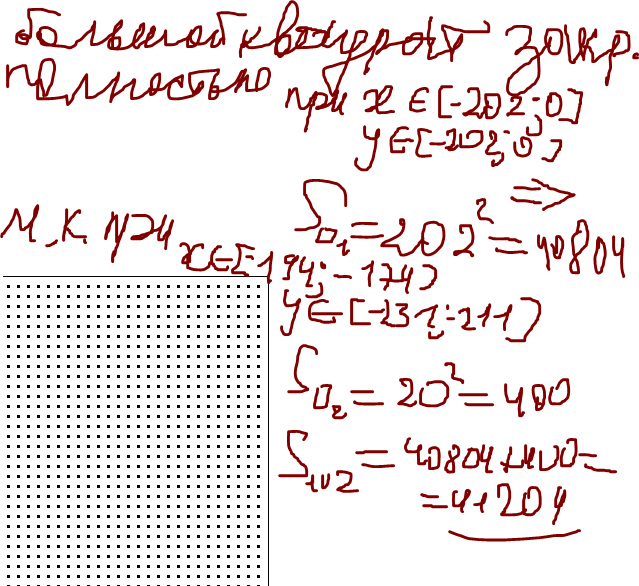 большой квадрат закр.
полностью при x ∈ [-202; 0]
y ∈ [-202; 0]
S□₁ = 202² = 40804 =>
М.К.
x ∈ [-194; -174)
y ∈ [-231; -211)
S□₂ = 20² = 400
S₁∪₂ = 40804 + 400 =
= 41204